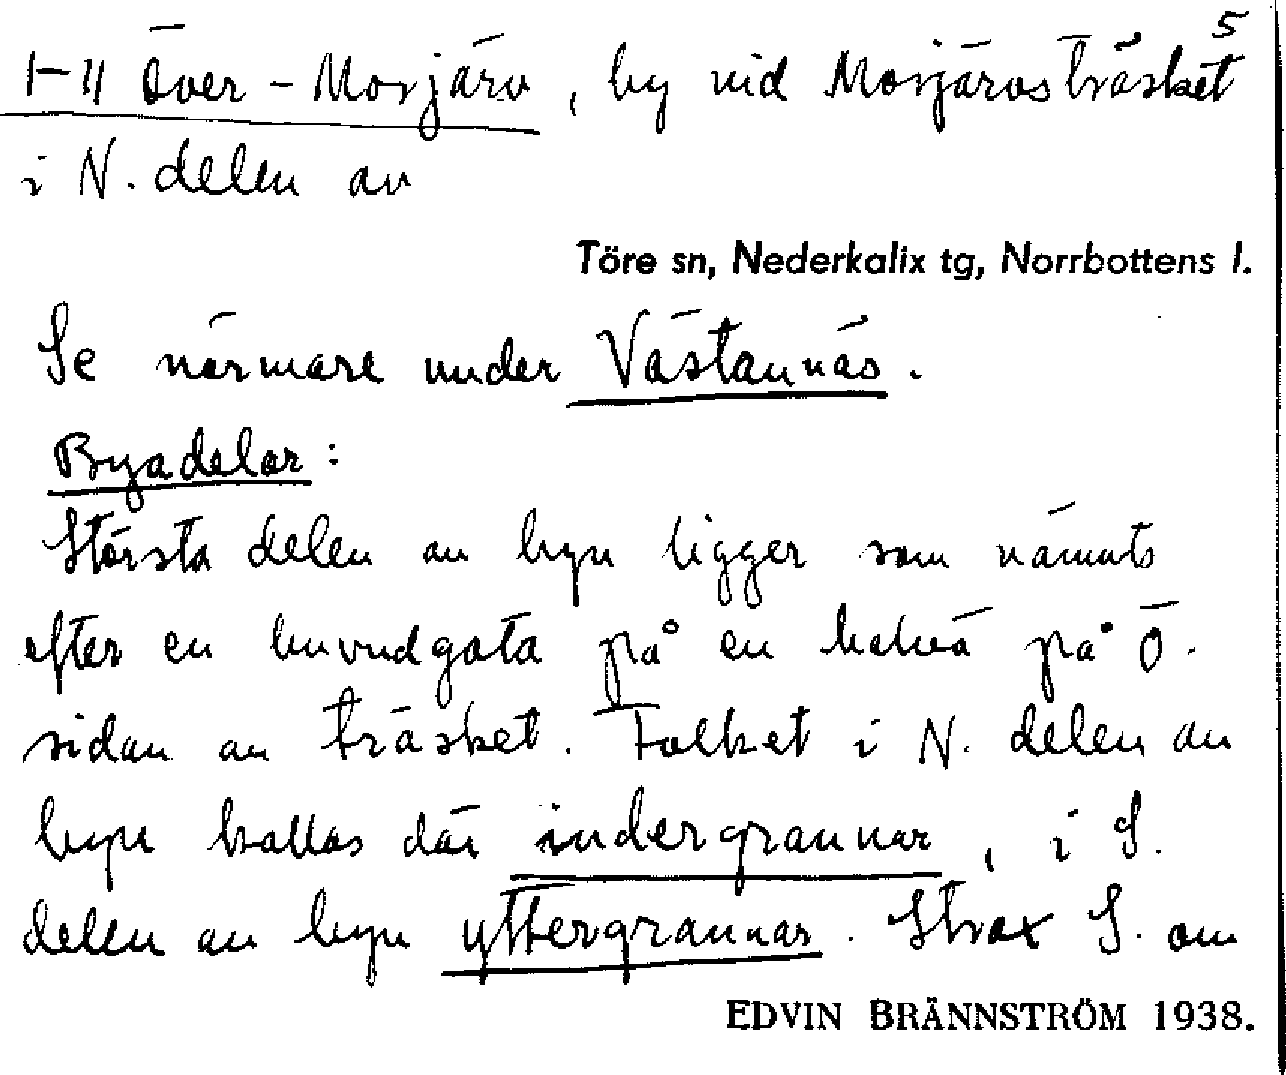 5
1-11 Över-Morjärv, by vid Morjärvsträsket
i N. delen av
Töre sn, Nederkalix tg, Norrbottens l.
Se närmare under Västannäs.
Byadelar:
Största delen av byn ligger som nämnts
efter en huvudgata på en halvö på Ö.
sidan av träsket. Folket i N. delen av
byn kallas där indergrannar, i S.
delen av byn yttergrannar. Strax S. om
EDVIN BRÄNNSTRÖM 1938.